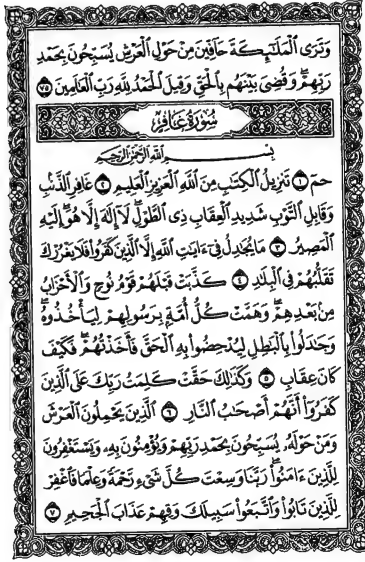 وَتَرَى ٱلْمَلَٰٓئِكَةَ حَآفِّينَ مِنْ حَوْلِ ٱلْعَرْشِ يُسَبِّحُونَ بِحَمْدِ
رَبِّهِمْ وَقُضِىَ بَيْنَهُم بِٱلْحَقِّ وَقِيلَ ٱلْحَمْدُ لِلَّهِ رَبِّ ٱلْعَٰلَمِينَ ٧٥
سُورَةُ غَافِرٍ
بِسْمِ ٱللَّهِ ٱلرَّحْمَٰنِ ٱلرَّحِيمِ
حمٓ ١ تَنزِيلُ ٱلْكِتَٰبِ مِنَ ٱللَّهِ ٱلْعَزِيزِ ٱلْعَلِيمِ ٢ غَافِرِ ٱلذَّنۢبِ
وَقَابِلِ ٱلتَّوْبِ شَدِيدِ ٱلْعِقَابِ ذِى ٱلطَّوْلِ لَآ إِلَٰهَ إِلَّا هُوَ إِلَيْهِ
ٱلْمَصِيرُ ٣ مَا يُجَٰدِلُ فِىٓ ءَايَٰتِ ٱللَّهِ إِلَّا ٱلَّذِينَ كَفَرُوا۟ فَلَا يَغْرُرْكَ
تَقَلُّبُهُمْ فِى ٱلْبِلَٰدِ ٤ كَذَّبَتْ قَبْلَهُمْ قَوْمُ نُوحٍ وَٱلْأَحْزَابُ
مِنۢ بَعْدِهِمْ وَهَمَّتْ كُلُّ أُمَّةٍۭ بِرَسُولِهِمْ لِيَأْخُذُوهُ
وَجَٰدَلُوا۟ بِٱلْبَٰطِلِ لِيُدْحِضُوا۟ بِهِ ٱلْحَقَّ فَأَخَذْتُهُمْ فَكَيْفَ
كَانَ عِقَابِ ٥ وَكَذَٰلِكَ حَقَّتْ كَلِمَتُ رَبِّكَ عَلَى ٱلَّذِينَ
كَفَرُوٓا۟ أَنَّهُمْ أَصْحَٰبُ ٱلنَّارِ ٦ ٱلَّذِينَ يَحْمِلُونَ ٱلْعَرْشَ
وَمَنْ حَوْلَهُۥ يُسَبِّحُونَ بِحَمْدِ رَبِّهِمْ وَيُؤْمِنُونَ بِهِۦ وَيَسْتَغْفِرُونَ
لِلَّذِينَ ءَامَنُوا۟ رَبَّنَا وَسِعْتَ كُلَّ شَىْءٍ رَّحْمَةً وَعِلْمًا فَٱغْفِرْ
لِلَّذِينَ تَابُوا۟ وَٱتَّبَعُوا۟ سَبِيلَكَ وَقِهِمْ عَذَابَ ٱلْجَحِيمِ ٧